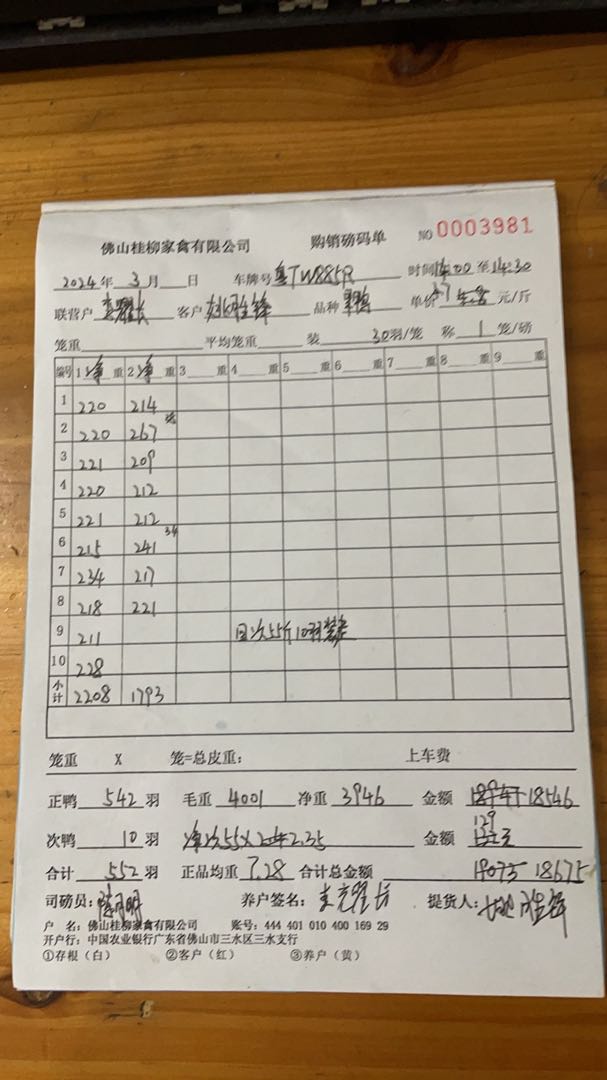 佛山桂柳家禽有限公司 购销磅码单 NO 0003981
2024年 3月 日 车牌号 粤TW885R 时间 14:00 至 14:30
联营户 客户 品种 单价 4.7 元/斤
笼重 平均笼重 装 30羽/笼 称 1 笼/磅
编号 1 净 重 2 净 重 3 重 4 重 5 重 6 重 7 重 8 重 9 重
1 220 214
2 220 267
3 221 209
4 220 212
5 221 212
6 215 241 34
7 234 217
8 218 221
9 211 回次55斤10羽
10 228
小计 2208 1793
笼重 X 笼=总皮重: 上车费
正鸭 542 羽 毛重 4001 净重 3946 金额 18546
次鸭 10 羽 净次55X 2.35 金额 129
合计 552 羽 正品均重 7.28 合计总金额 18675
司磅员: 养户签名: 提货人:
户 名: 佛山桂柳家禽有限公司 账号: 444 401 010 400 169 29
开户行: 中国农业银行广东省佛山市三水区三水支行
①存根(白) ②客户(红) ③养户(黄)